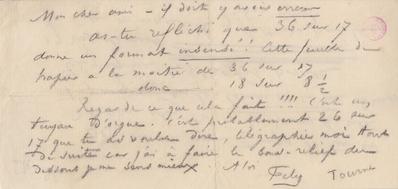 Mon cher ami - il doit y avoir erreur
as-tu réfléchi que 36 sur 17
donne un format insensé! Cette feuille de
papier a la moitié de 36 sur 17
donc 18 sur 8 1/2
Regarde ce que cela fait !!!! C'est un
tuyau d'orgue. C'est probablement 26 sur
17 que tu as voulu dire. Télégraphies moi tout
de suite car j'ai à faire le bas-relief du
dessous je me sens mieux
Fély
Tourne